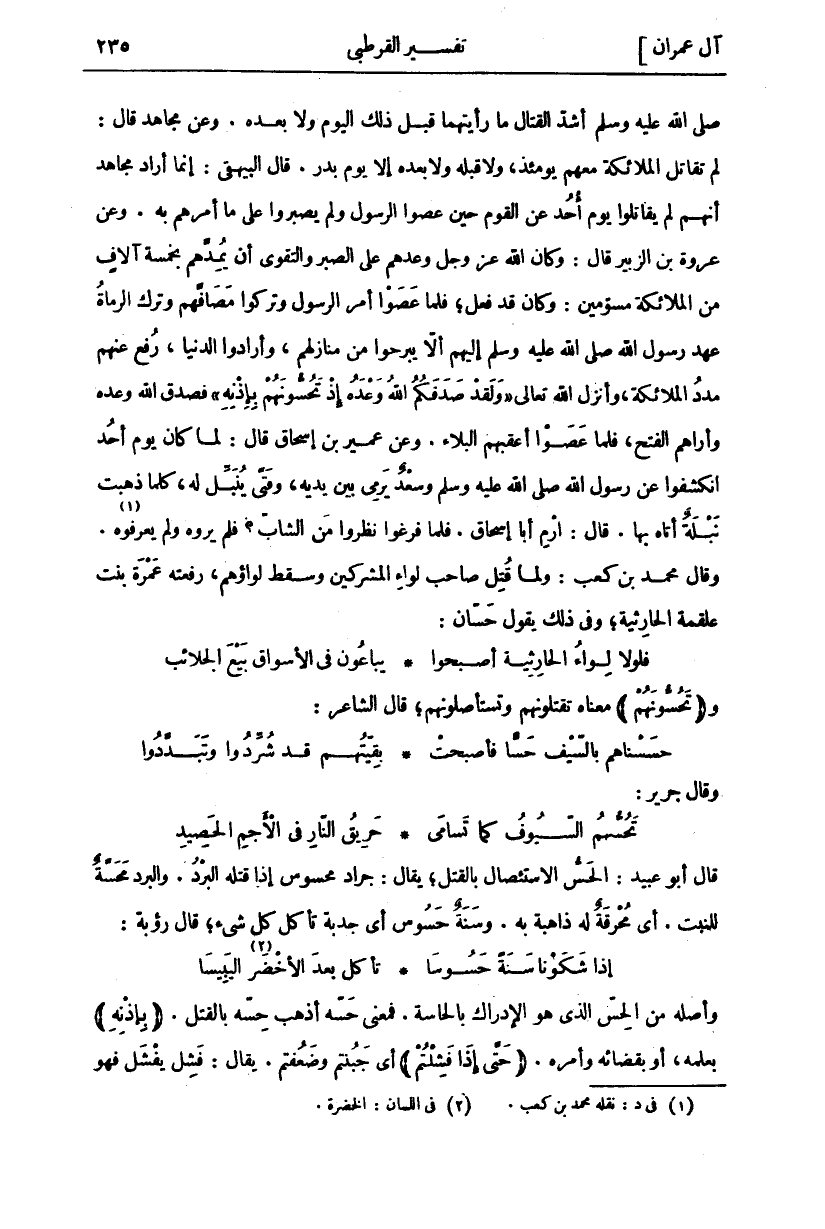 آل عمران ] تفسير القرطبى ٢٣٥
صلى الله عليه وسلم أشدّ القتال ما رأيتهما قبل ذلك اليوم ولا بعده . وعن مجاهد قال :
لم تقاتل الملائكة معهم يومئذ، ولا قبله ولا بعده إلا يوم بدر . قال البيهقى : إنما أراد مجاهد
أنهم لم يقاتلوا يوم أُحُد عن القوم حين عصوا الرسول ولم يصبروا على ما أمرهم به . وعن
عروة بن الزبير قال : وكان الله عز وجل وعدهم على الصبر والتقوى أن يُمِدَّهم بخمسة آلاف
من الملائكة مسوّمين : وكان قد فعل؛ فلما عَصَوْا أمر الرسول وتركوا مَصَافَّهم وترك الرماةُ
عهد رسول الله صلى الله عليه وسلم إليهم ألّا يبرحوا من منازلهم ، وأرادوا الدنيا ، رُفع عنهم
مددُ الملائكة، وأنزل الله تعالى «وَلَقَدْ صَدَقَكُمُ اللهُ وَعْدَهُ إِذْ تَحُسُّونَهُمْ بِإِذْنِهِ» فصدق الله وعده
وأراهم الفتح، فلما عَصَوْا أعقبهم البلاء . وعن عمير بن إسحاق قال : لما كان يوم أُحُد
انكشفوا عن رسول الله صلى الله عليه وسلم وسعْدٌ يَرمِى بين يديه، وفتًى يُنَبِّل له، كلما ذهبت
نَبْلَةٌ أتاه بها . قال : ارْمِ أبا إسحاق . فلما فرغوا نظروا مَن الشابّ؟ فلم يروه ولم يعرفوه (١) .
وقال محمد بن كعب : ولما قُتِل صاحب لواء المشركين وسقط لواؤهم، رفعته عَمْرَة بنت
علقمة الحارثية؛ وفى ذلك يقول حَسّان :
فلولا لِواءُ الحارِثِية أصبحوا * يباعُون فى الأسواق بَيْعَ الجلائب
و﴿تَحُسُّونَهُمْ﴾ معناه تقتلونهم وتستأصلونهم؛ قال الشاعر :
حَسَسْناهم بالسّيْف حَسًّا فأصبحتْ * بقيّتُهم قد شُرِّدُوا وتَبَدَّدُوا
وقال جرير :
تَحُسُّهمُ السّيُوفُ كما تَسامَى * حَرِيقُ النّارِ فى الأَجمِ الحَصِيدِ
قال أبو عبيد : الحَسُّ الاستئصال بالقتل؛ يقال : جراد محسوس إذا قتله البرْدُ . والبرد مَحَسَّةٌ
للنبت . أى مُحْرِقَةٌ له ذاهبة به . وسَنَةٌ حَسُوس أى جدبة تأكل كل شىء؛ قال رؤبة :
إذا شَكَوْنا سَنَةً حَسُوسَا * تأكل بعدَ الأخْضَر (٢) اليَبِيسَا
وأصله من الحِسّ الذى هو الإدراك بالحاسة . فمعنى حَسّه أذهب حِسّه بالقتل . ﴿بِإِذْنِهِ﴾
بعلمه، أو بقضائه وأمره . ﴿حَتَّى إِذَا فَشِلْتُمْ﴾ أى جَبُنتم وضَعُفتم . يقال : فَشِل يفْشَل فهو
(١) فى د : نقله محمد بن كعب . (٢) فى اللسان : الخضرة .